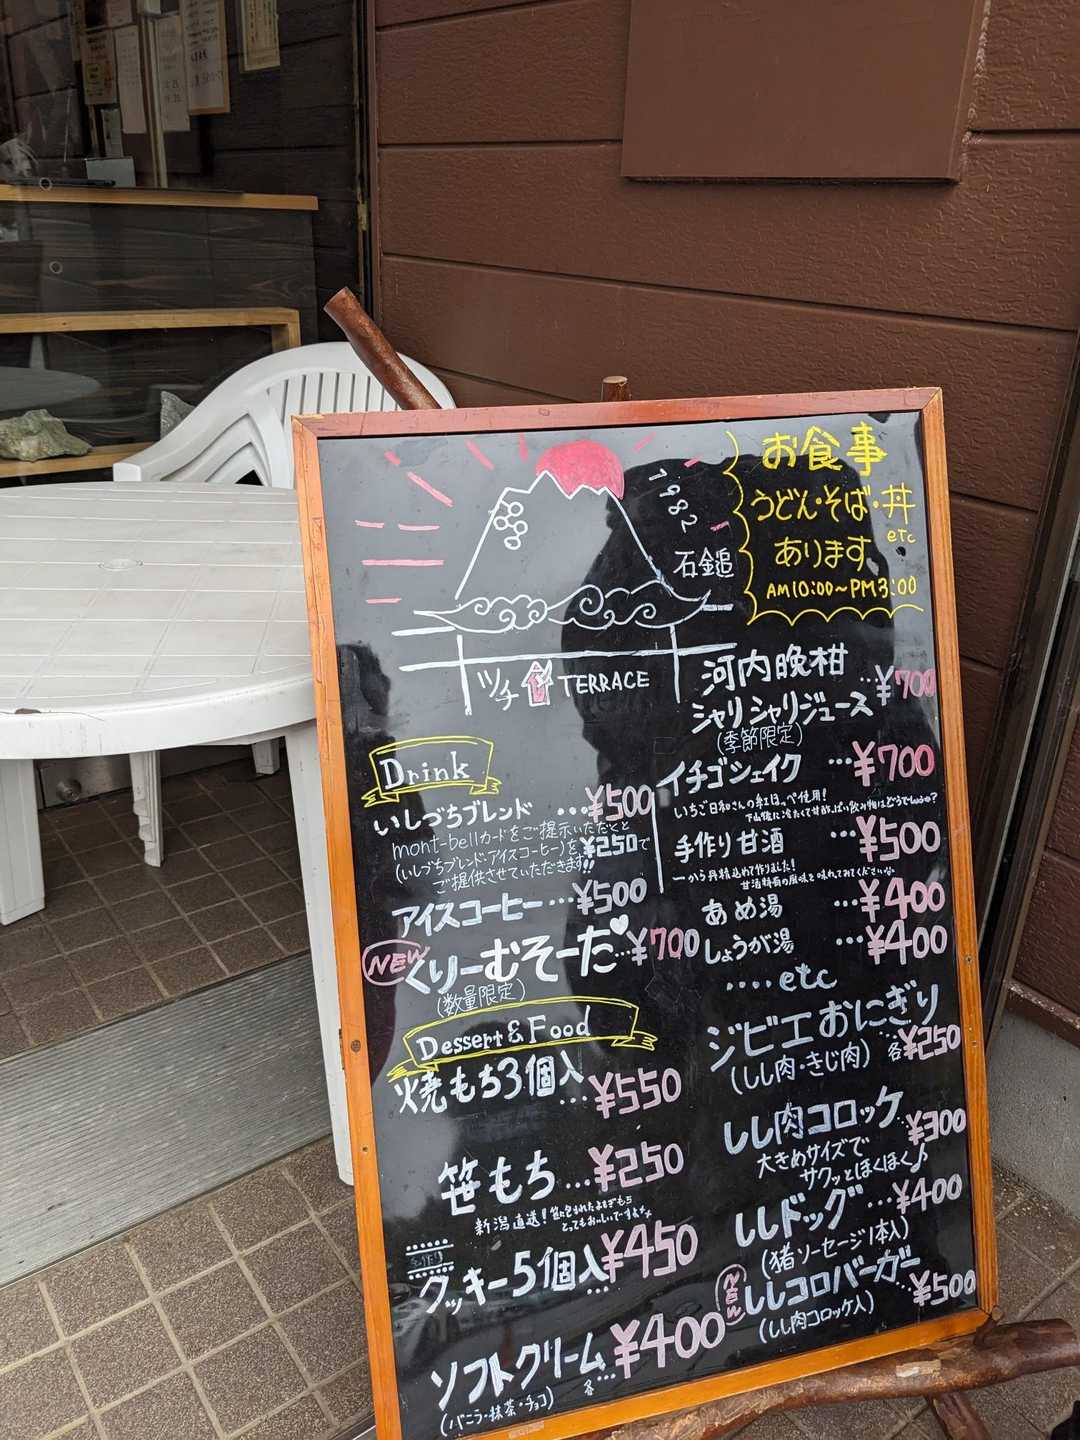 1982
石鎚
ツチ TERRACE
お食事
うどん・そば・丼
etc
あります
AM10:00~PM3:00
Drink
いしづちブレンド …¥500
mont-bellカードをご提示いただくと
(いしづちブレンド・アイスコーヒー)を¥250で
ご提供させていただきます!!
アイスコーヒー…¥500
NEW くりーむそーだ♥…¥700
(数量限定)
河内晩柑
シャリシャリジュース …¥700
(季節限定)
イチゴシェイク …¥700
いちご日和さんの紅ほっぺ使用!
手作り甘酒 …¥500
一から丹精込めて作りました!
甘酒特有の風味を味わってみてくださいな
あめ湯 …¥400
しょうが湯 …¥400
....etc
Dessert & Food
焼もち3個入 …¥550
笹もち …¥250
新潟直送!笹に包まれたよもぎもち
とってもおいしいですよ
クッキー5個入 …¥450
ソフトクリーム 各…¥400
(バニラ・抹茶・チョコ)
ジビエおにぎり
(しし肉・きじ肉) 各¥250
しし肉コロッケ …¥300
大きめサイズで
サクッとほくほく♪
ししドッグ …¥400
(猪ソーセージ1本入)
NEW ししコロバーガー …¥500
(しし肉コロッケ入)